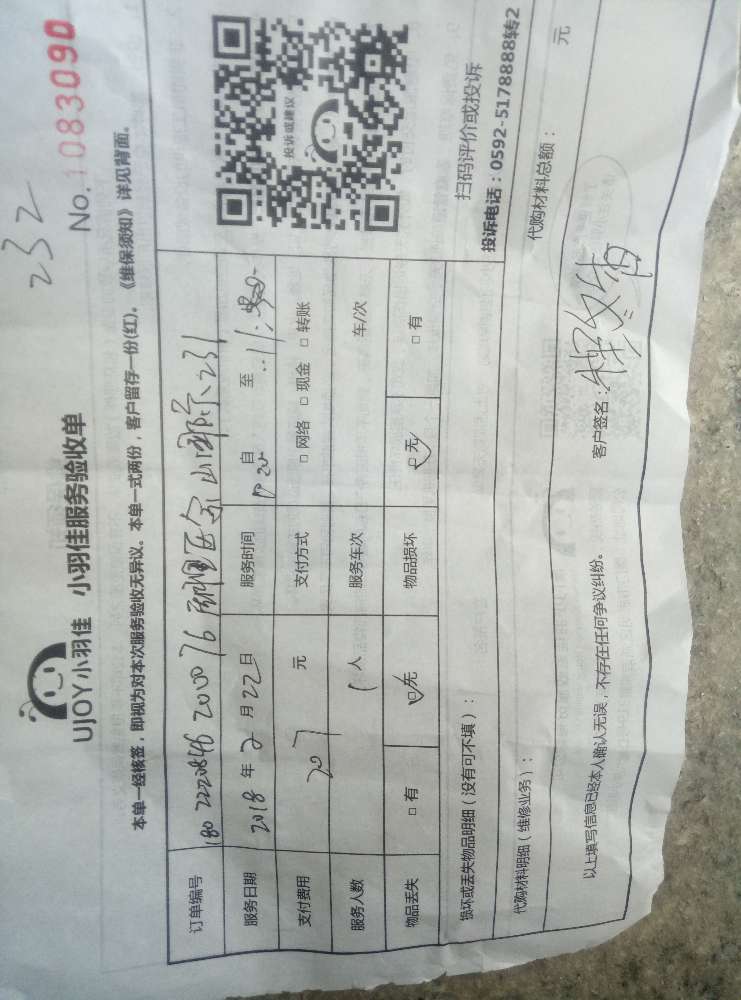 232
No.1083090
UJOY小羽佳 小羽佳服务验收单
本单一经核签，即视为对本次服务验收无异议。本单一式两份，客户留存一份(红)。《维保须知》详见背面。
订单编号 180 2220846 2010076 山国际 231
服务日期 2018 年 2 月 22 日 服务时间 自 至
支付费用 207 元 支付方式 □ 网络 □ 现金 □ 转账
服务人数 1 人 服务车次 车/次
物品丢失 □ 有 □ 无 物品损坏 □ 无 □ 有
投诉或建议
扫码评价或投诉
投诉电话：0592-5178888转2
损坏或丢失物品明细（没有可不填）：
代购材料明细（维修业务）： 代购材料总额： 元
以上填写信息已经本人确认无误，不存在任何争议纠纷。 客户签名：